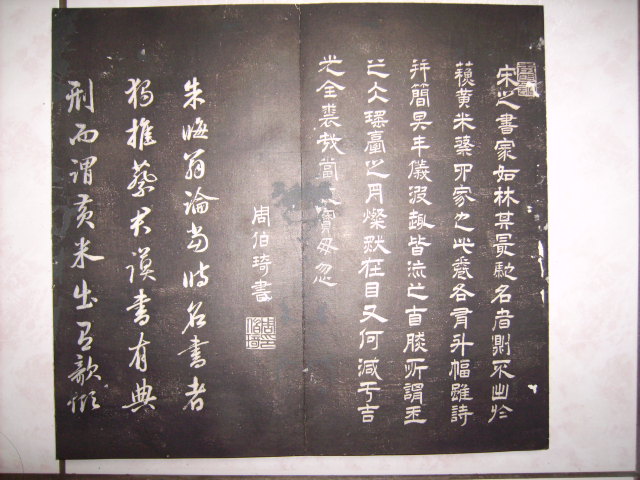 宋之書家如林其最馳名者則不出於
蘇黃米蔡四家之此卷各有斗幅雖詩
簡具丰儀趣皆流之所謂玉
臺之月燦然在目又何減于吉
光全裘哉當寶毋忽
周伯琦書
朱晦翁論當時名書者
獨推蔡君謨書有典
刑而謂黃米出有欹傾